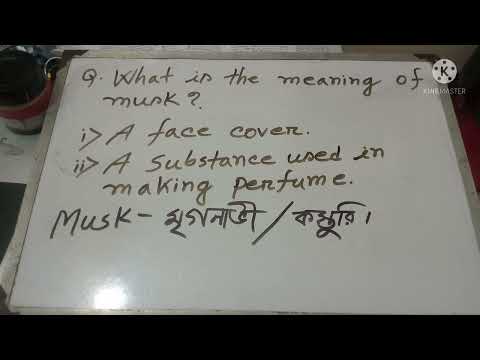 Q. What is the meaning of
musk?
i> A face cover.
ii> A substance used in
making perfume.
Musk - মৃগনাভী / কস্তুরি ।
K
KINEMASTER